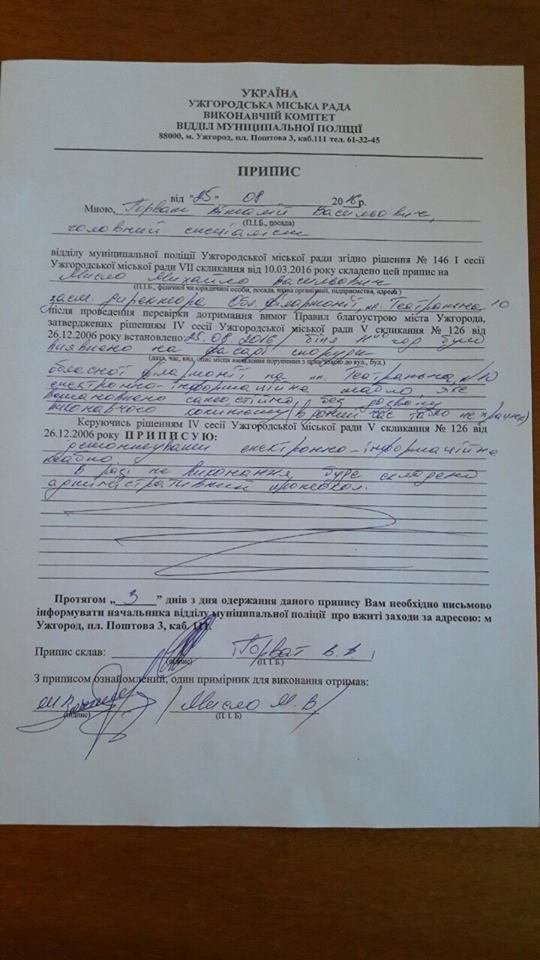 УКРАЇНА
УЖГОРОДСЬКА МІСЬКА РАДА
ВИКОНАВЧИЙ КОМІТЕТ
ВІДДІЛ МУНІЦИПАЛЬНОЇ ПОЛІЦІЇ
88000, м. Ужгород, пл. Поштова 3, каб.111 тел. 61-32-45
ПРИПИС
від "25" 08 2016 р.
Мною, Горват Віталій Васильович,
(П.І.Б., посада)
головний спеціаліст
відділу муніципальної поліції Ужгородської міської ради згідно рішення № 146 І сесії
Ужгородської міської ради VII скликання від 10.03.2016 року складено цей припис на
Мисло Михайло Васильович
(П.І.Б., фізичної чи юридичної особи, посада, назва організації, підприємства, адреса)
заст. директора Обл. філармонії, пл. Театральна 10
після проведення перевірки дотримання вимог Правил благоустрою міста Ужгорода,
затверджених рішенням IV сесії Ужгородської міської ради V скликання № 126 від
26.12.2006 року встановлено: 25.08.2016 біля год було
виявлено на фасаді споруди
обласної філармонії, на пл. Театральна, №10
електронно-інформаційна табло яке
встановлено самостійно, без дозволу
виконавчого комітету (в даний час табло не працює)
Керуючись рішенням IV сесії Ужгородської міської ради V скликання № 126 від
26.12.2006 року ПРИПИСУЮ:
електронно-інформаційне
табло.
В разі не виконання буде складено
адміністративний протокол.
Протягом „ 3 ” днів з дня одержання даного припису Вам необхідно письмово
інформувати начальника відділу муніципальної поліції про вжиті заходи за адресою: м
Ужгород, пл. Поштова 3, каб. 111.
Припис склав: Горват В.В.
(підпис) (П. І Б.)
З приписом ознайомлений, один примірник для виконання отримав:
Мисло М.В
(підпис) (П. І. Б)